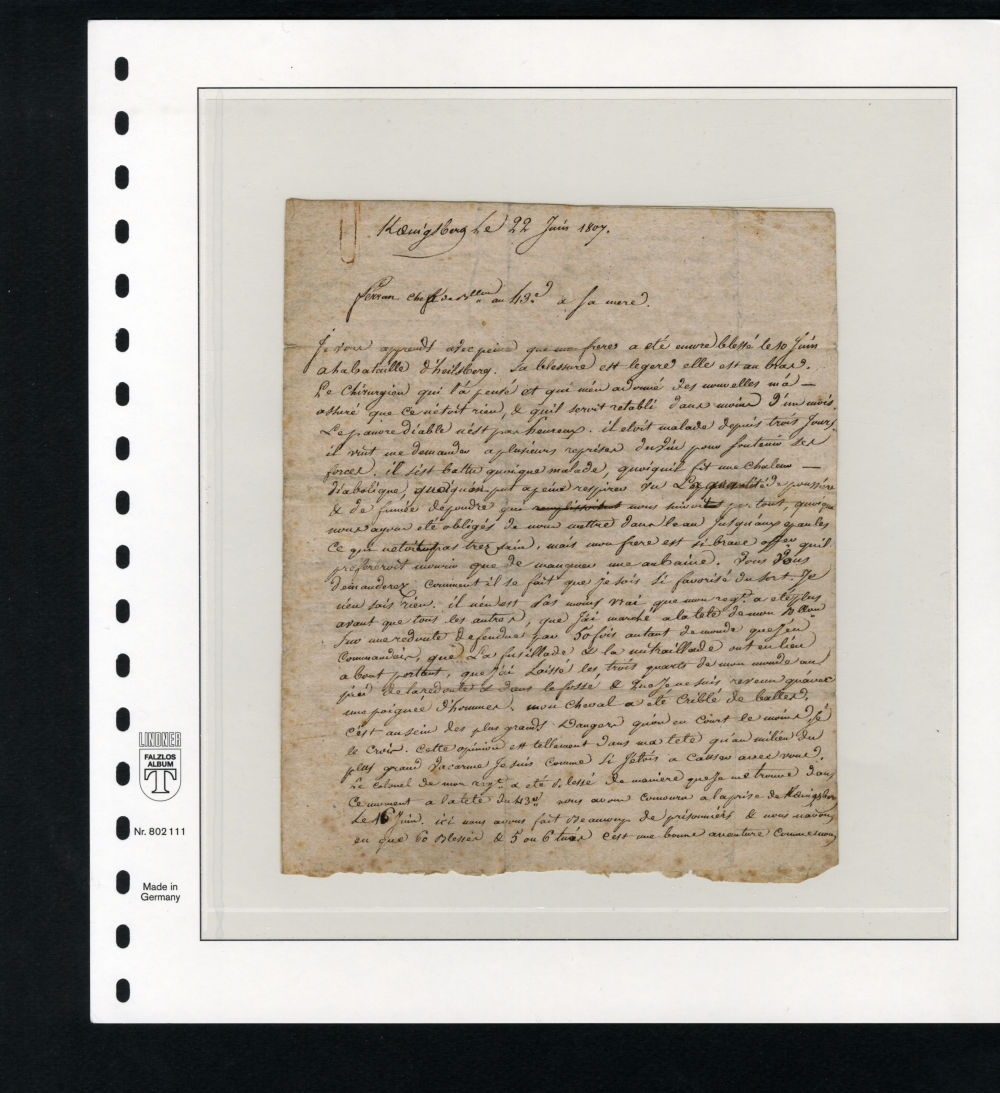 Kœnigsberg Le 22 Juin 1807.
ferran chef de Bllon au 43e. a Sa mere.
Je vous apprends avec peine que mon frere a eté encore blessé le 10 Juin
a la bataille d'heilsberg. Sa blessure est legere elle est au bras.
Le Chirurgien qui l'a pensé et qui m'en a donné des nouvelles m'a —
assuré que ce n'étoit rien, & quil seroit retabli dans moins d'un mois.
Le pauvre diable n'est pas heureux. il etoit malade depuis trois Jours,
il vint me demander a plusieurs reprises du vin pour soutenir ses
forces. il s'est battu quoique malade, quoiquil fit une chaleur —
diabolique, quoiquon put a peine respirer vu La quantité de poussiere
& de fumée de poudre qui remplissoient nous suivoit partout, quoique
nous ayons eté obligés de nous mettre dans leau Jusquaux epaules
ce qui netoit pas trez sain, mais mon frere est si brave offer quil
prefereroit mourir que de manquer une aubaine. Vous Vous
demanderez comment il se fait que je sois si favorisé du sort. Je
n'en sais rien. il n'en est pas moins vrai que mon regt. a eté plus
avant que tous les autres, que J'ai marché a la tete de mon Bllon
sur une redoute defendue par 50 fois autant de monde que J'en
Commandais, que La fusillade & la mitraillade ont eu lieu
a bout portant, que J'ai Laissé les trois quarts de mon monde au
pied de la redoute & dans le fossé & que Je ne suis revenu quavec
une poignée d'hommes. mon cheval a eté criblé de balles.
c'est au sein des plus grands Dangers qu'on en court le moins Je
le crois. Cette opinion est tellement dans ma tete qu'au milieu du
plus grand vacarme Je suis comme si J'etois a causer avec vous.
Le colonel de mon regt. a eté blessé de maniere que Je me trouve dans
ce moment a la tete du 43e. nous avons concouru a la prise de Kœnigsberg
Le 16 Juin. ici nous avons fait Beaucoup de prisonniers & nous n'avons
eu que 60 Blessés & 5 ou 6 tués c'est une bonne aventure comme vous
LINDNER
FALZLOS
ALBUM
T
Nr. 802 111
Made in
Germany